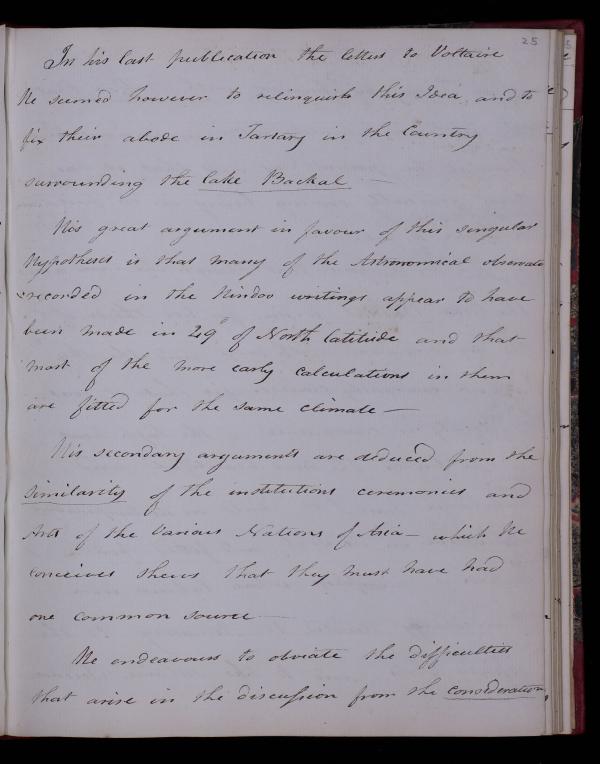 25
In his last publication the letters to Voltaire
He seemed however to relinquish this Idea and to
fix their abode in Tartary in the Country
surrounding the lake Backal —
His great argument in favour of this singular
Hypothesis is that many of the Astronomical observats
recorded in the Hindoo writings appear to have
been made in 49° of North latitude and that
most of the more early calculations in them
are fitted for the same climate —
His secondary arguments are deduced from the
similarity of the institutions ceremonies and
Arts of the Various Nations of Asia — which He
conceives shews that they must have had
one common source —
He endeavours to obviate the difficulties
that arise in the discussion from the consideration